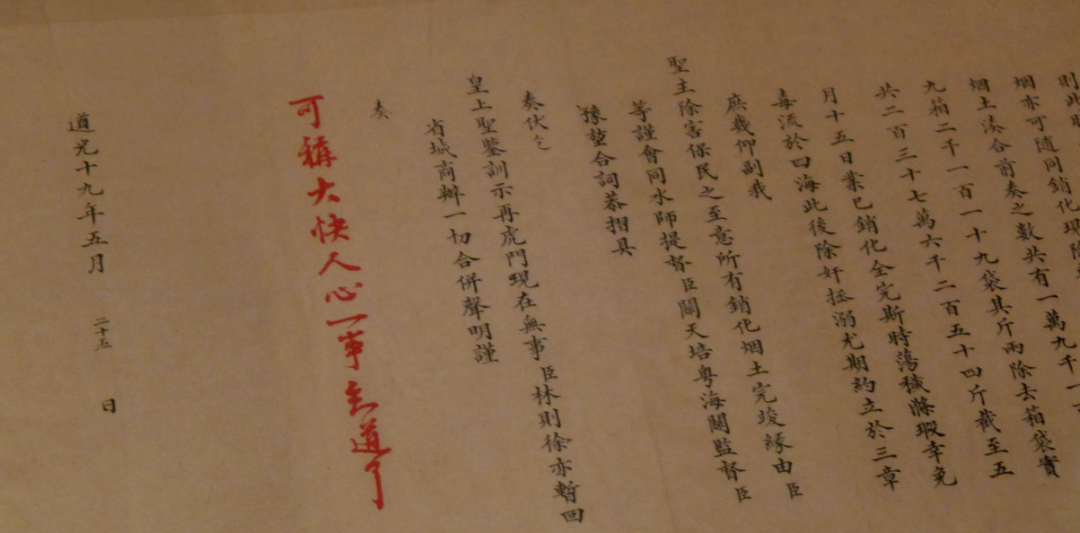 烟亦可隨同銷化現除
烟土湊合前奏之數共有一萬九千一
九箱二千一百一十九袋其斤兩除去箱袋實
共二百三十七萬六千二百五十四斤截至五
月十五日業已銷化全完斯時蕩穢滌瑕幸免
毒流於四海此後除奸拯溺尤期約立於三章
庶幾仰副我
聖主除害保民之至意所有銷化烟土完竣緣由臣
等謹會同水師提督臣關天培粵海關監督臣
豫堃合詞恭摺具
奏伏乞
皇上聖鑒訓示再虎門現在無事臣林則徐亦暫回
省城商辦一切合併聲明謹
奏
可稱大快人心一事知道了
道光十九年五月 二十五 日